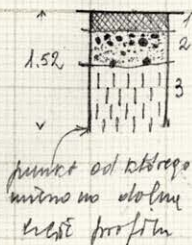 1
2
1.52
3
punkt od którego
mierzono dolną
część profilu